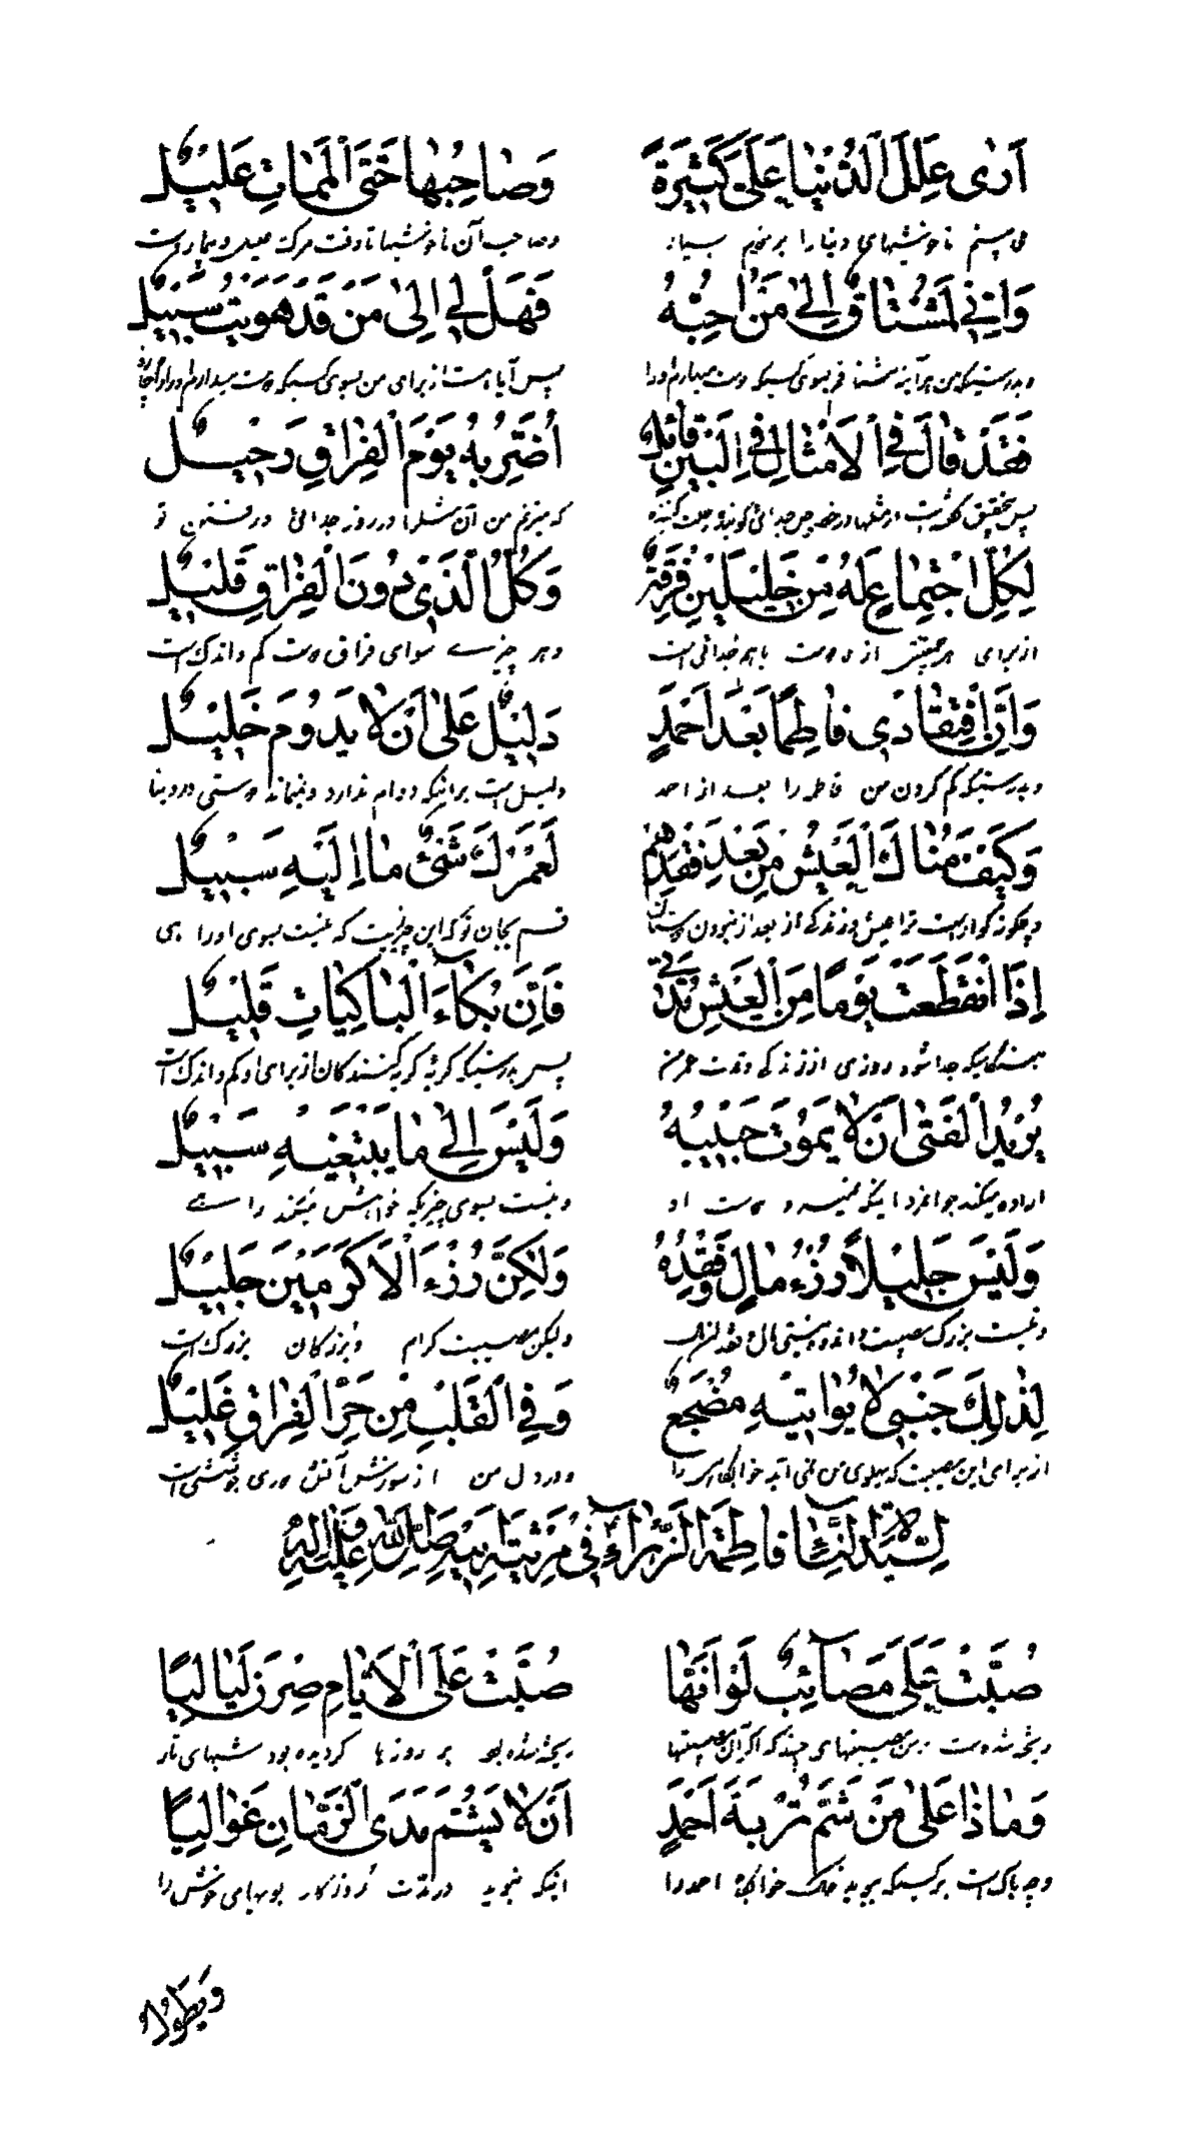 اَرٰى عِلَلَ الدُّنْيٰا عَلَيَّ كَثيرَةً وَصٰاحِبُهٰا حَتَّى الْمَمٰاتِ عَليلٌ
می بینم ناخوشیهای دنیا را بر خودم بسیار وصاحب آن ناخوشیها تا وقت مرگ علیل و بیمار است
وَاِنّي لَمُشْتٰاقٌ اِلىٰ مَنْ اُحِبُّهُ فَهَلْ لي اِلىٰ مَنْ قَدْ هَوَيْتُ سَبيلٌ
وبدرستیکه من هرآینه مشتاقم بسوی کسیکه دوست میدارم اورا پس آیا هست از برای من بسوی کسیکه دوست میدارم اورا
فَقَدْ قٰالَ فِي الْاَمْثٰالِ فِي الْبَيْنِ قٰائِلٌ اُضَرُّ بِهِ يَوْمَ الْفِرٰاقِ رَحيلٌ
پس بتحقیق گفته است در مثلها در جدائی گوینده که میزنم من آن مثل را در روز جدائی و رفتن تو
لِكُلِّ اجْتِمٰاعٍ مِنْ خَليلَيْنِ فُرْقَةٌ وَكُلُّ الَّذي دُونَ الْفِرٰاقِ قَليلٌ
از برای هر جمعیتی از دو دوست باهم جدائی است و هر چیزے سوای فراق دوست کم و اندک است
وَاِنَّ افْتِقٰادي فٰاطِمًا بَعْدَ اَحْمَدٍ دَليلٌ عَلىٰ اَنْ لٰا يَدُومَ خَليلٌ
وبدرستیکه گم کردن من فاطمه را بعد از احمد دلیل است برانیکه دوام ندارد ونمیماند دوستی در دنیا
وَكَيْفَ هُنٰاكَ الْعَيْشُ مِنْ بَعْدِ فَقْدِهِمْ لَعَمْرُكَ شَيْءٌ مٰا اِلَيْهِ سَبيلٌ
وچگونه گوارا است ترا عیش وزندگی از بعد از نبودن دوستان قسم بجان تو که این چیزیست که نیست بسوی او راهی
اِذَا انْقَطَعَتْ يَوْمًا مِنَ الْعَيْشِ مُدَّتي فَاِنَّ بُكٰاءَ الْبٰاكِيٰاتِ قَليلٌ
هنگامیکه جدا شود روزی از زندگی مدت عمر من پس بدرستیکه گریهٔ گریه کنندگان از برای او کم و اندک است
يُريدُ الْفَتىٰ اَنْ لٰا يَمُوتَ حَبيبُهُ وَلَيْسَ اِلىٰ مٰا يَبْتَغيهِ سَبيلٌ
اراده میکند جوانمرد اینکه نمیرد دوست او ونیست بسوی چیزیکه خواهش میکند راهے
وَلَيْسَ جَليلًا رُزْءُ مٰالٍ وَفَقْدُهُ وَلٰكِنَّ رُزْءَ الْاَكْرَمينَ جَليلٌ
ونیست بزرگ مصیبت واندوه نیستی مال ولیکن مصیبت کرام وبزرگان بزرگ است
لِذٰلِكَ جَنْبي لٰا يُوٰاتيهِ مَضْجَعٌ وَفِي الْقَلْبِ مِنْ حَرِّ الْفِرٰاقِ غَليلٌ
از برای این مصیبت که پهلوی من نمی آید خوابگاهی را ودر دل من از سوزش آتش دوری
لِسَيِّدَةِ النِّسٰاءِ فٰاطِمَةَ الزَّهْرٰاءِ في مَرْثِيَةِ اَبيهِ صَلَّى اللّٰهُ عَلَيْهِ وَاٰلِهِ
صُبَّتْ عَلَيَّ مَصٰائِبٌ لَوْ اَنَّهٰا صُبَّتْ عَلَى الْاَيّٰامِ صِرْنَ لَيٰالِيًا
ریخته شده است بر من مصیبتهای چند که اگر آن مصیبتها ریخته شده بود بر روزها گردیده بود شبهای تار
وَمٰاذٰا عَلىٰ مَنْ شَمَّ تُرْبَةَ اَحْمَدٍ اَنْ لٰا يَشُمَّ مَدَى الزَّمٰانِ غَوٰالِيًا
وچه باک است بر کسیکه ببوید خاک خوابگاه احمد را اینکه نبوید در مدت روزگار بویهای خوش را